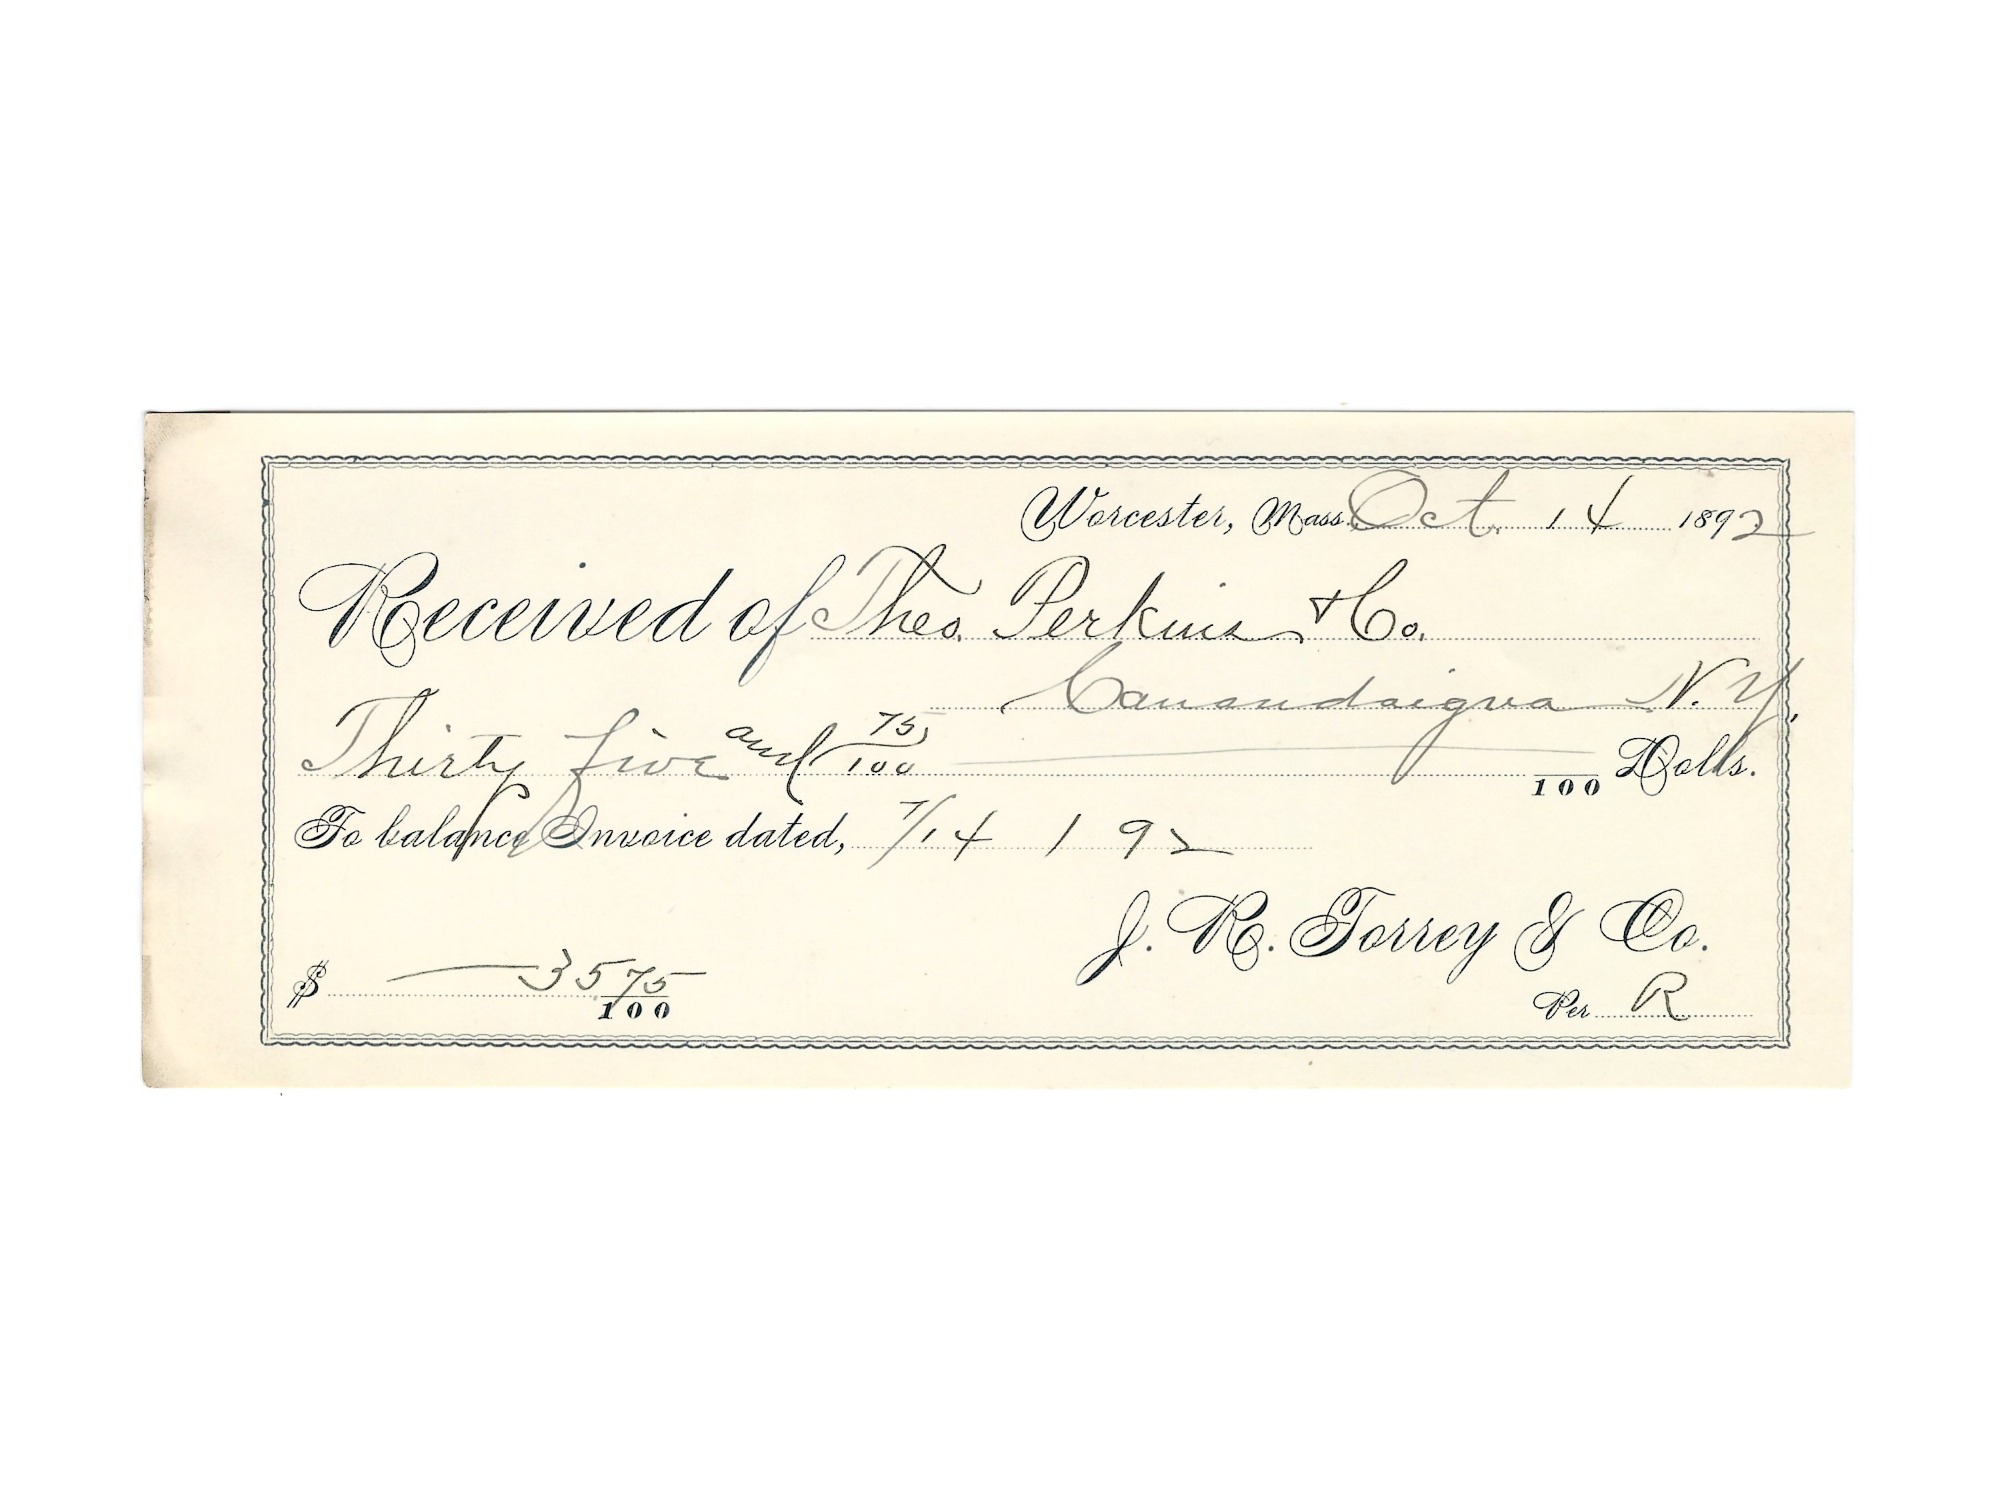 Worcester, Mass. Oct. 14 1892
Received of Theo. Perkins & Co.
Canandaigua N.Y.
Thirty five and 75/100 100 Dolls.
To balance Invoice dated, 7/14 / 92
J. R. Torrey & Co.
$ 35 75/100
Per R